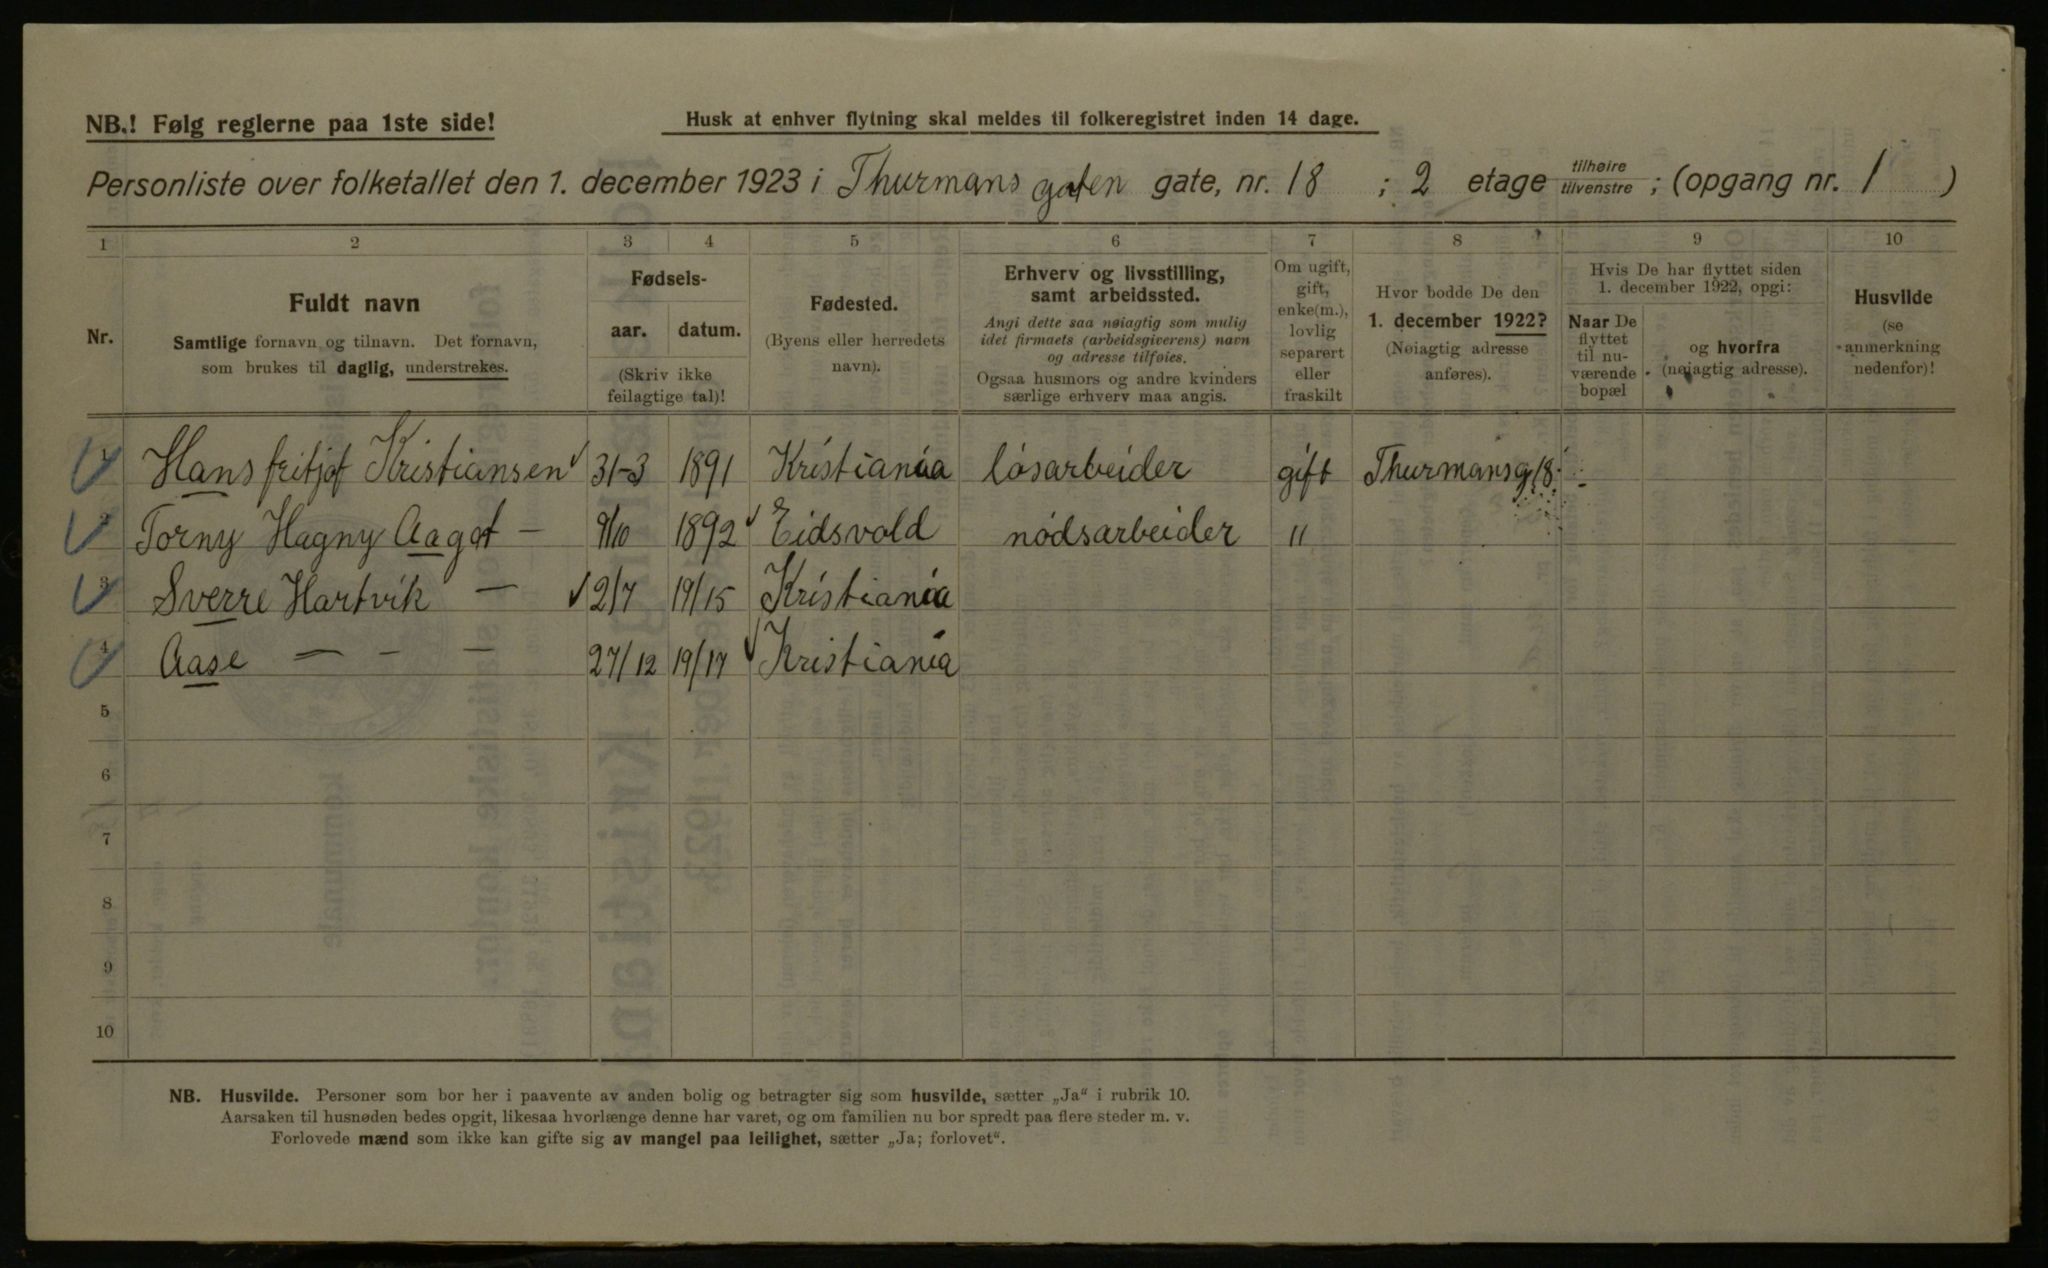 NB.! Følg reglerne paa 1ste side!
Husk at enhver flytning skal meldes til folkeregistret inden 14 dage.
Personliste over folketallet den 1. december 1923 i Thurmans gaten gate, nr. 18 ; 2 etage tilhøire tilvenstre ; (opgang nr. 1 )
1 2 3 4 5 6 7 8 9 10
Nr.
Fuldt navn
Samtlige fornavn og tilnavn. Det fornavn,
som brukes til daglig, understrekes.
Fødsels-
aar. datum.
(Skriv ikke
feilagtige tal)!
Fødested.
(Byens eller herredets
navn).
Erhverv og livsstilling,
samt arbeidssted.
Angi dette saa nøiagtig som mulig
idet firmaets (arbeidsgiverens) navn
og adresse tilføies.
Ogsaa husmors og andre kvinders
særlige erhverv maa angis.
Om ugift,
gift,
enke(m.),
lovlig
separert
eller
fraskilt
Hvor bodde De den
1. december 1922?
(Nøiagtig adresse
anføres).
Hvis De har flyttet siden
1. december 1922, opgi:
Naar De
flyttet
til nu-
værende
bopæl
og hvorfra
(nøiagtig adresse).
Husvilde
(se
anmerkning
nedenfor)!
1 Hans fritjof Kristiansen 31-3 1891 Kristiania løsarbeider gift Thurmansg 18.
2 Torny Hagny Aagot — 9/10 1892 Eidsvold nødsarbeider "
3 Sverre Hartvik — 2/7 19/15 Kristiania
4 Aase — - — 27/12 19/17 Kristiania
5
6
7
8
9
10
NB. Husvilde. Personer som bor her i paavente av anden bolig og betragter sig som husvilde, sætter „Ja“ i rubrik 10.
Aarsaken til husnøden bedes opgit, likesaa hvorlænge denne har varet, og om familien nu bor spredt paa flere steder m. v.
Forlovede mænd som ikke kan gifte sig av mangel paa leilighet, sætter „Ja; forlovet“.